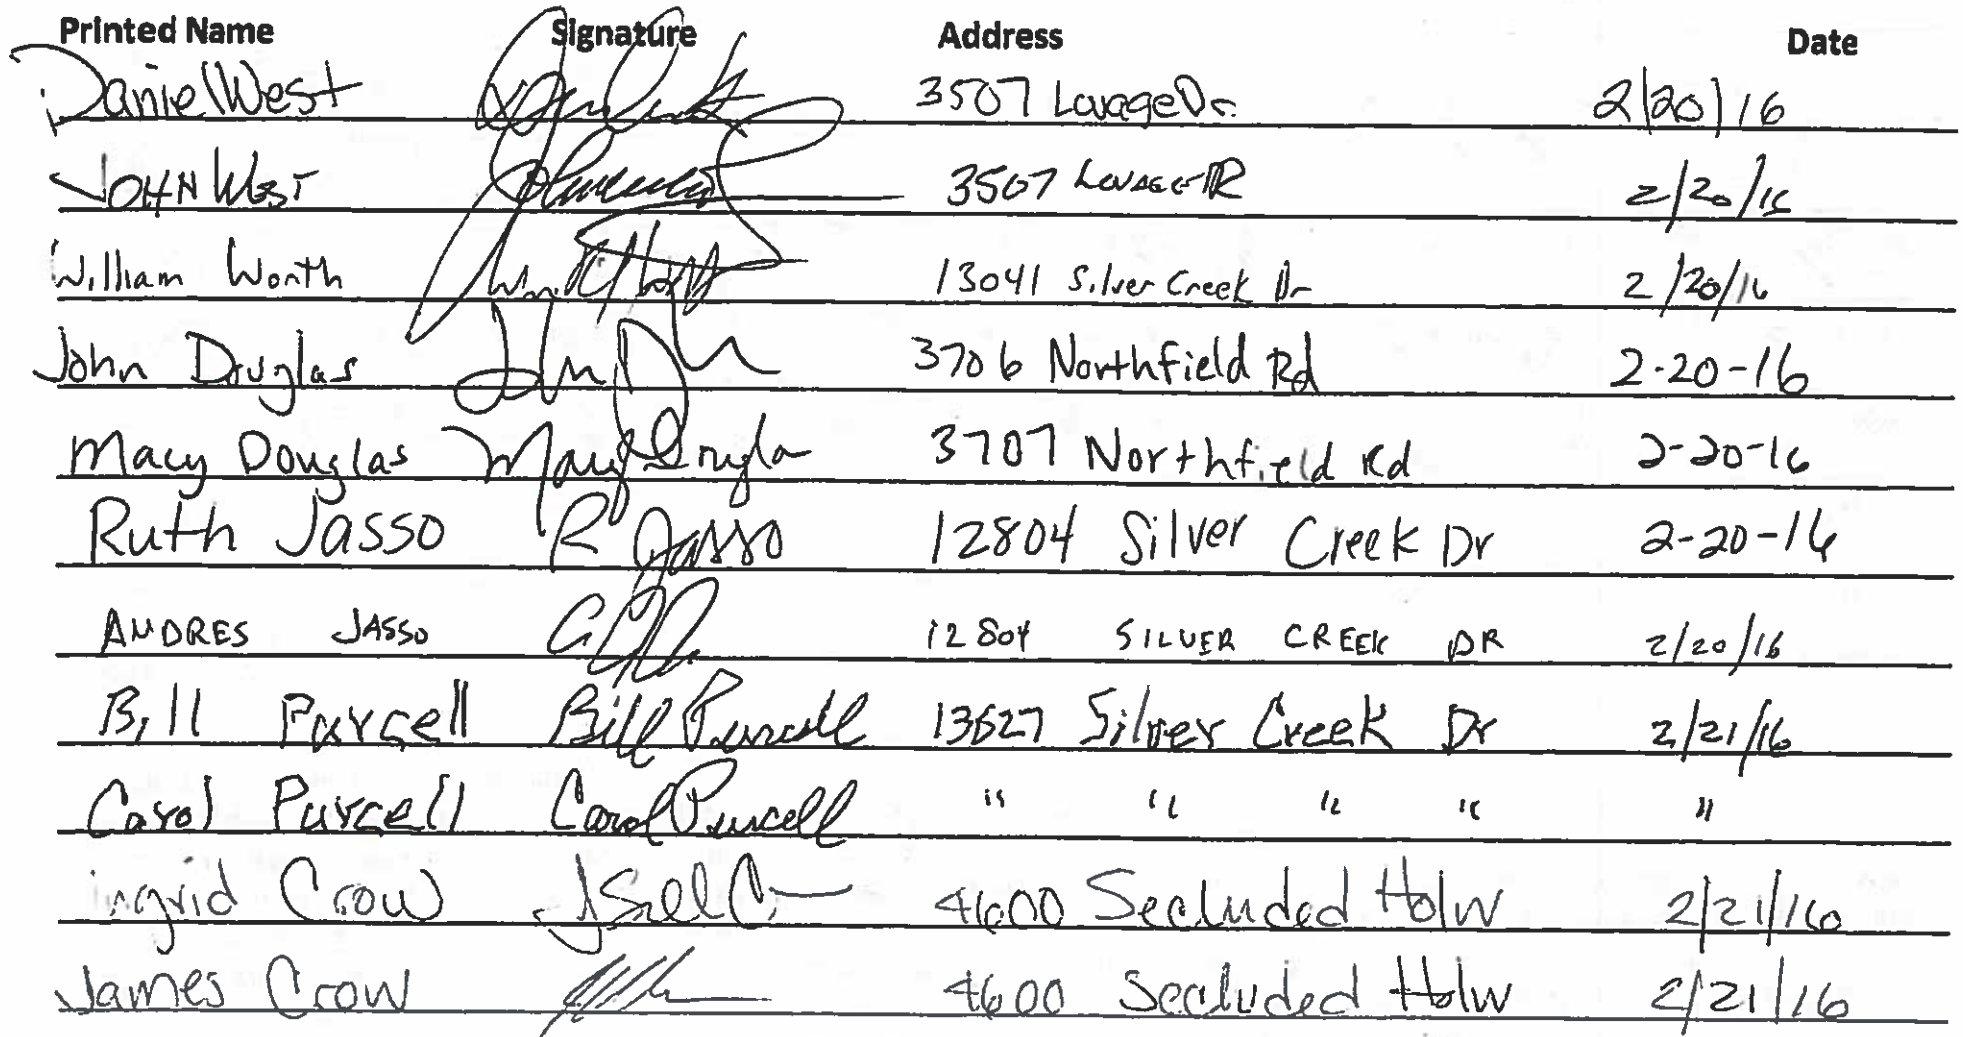 Printed Name Signature Address Date
Daniel West 3507 Lovage Dr. 2/20/16
JOHN WEST 3507 LOVAGE DR 2/20/16
William Worth 13041 Silver Creek Dr 2/20/16
John Douglas John D 3706 Northfield Rd 2-20-16
Macy Douglas Macy Dougla 3707 Northfield Rd 2-20-16
Ruth Jasso R Jasso 12804 Silver Creek Dr 2-20-16
ANDRES JASSO 12804 SILVER CREEK DR 2/20/16
Bill Purcell Bill Purcell 13627 Silver Creek Dr 2/21/16
Carol Purcell Carol Purcell " " " " "
ingrid Crow 4600 Secluded Holw 2/21/16
James Crow 4600 Secluded Holw 2/21/16